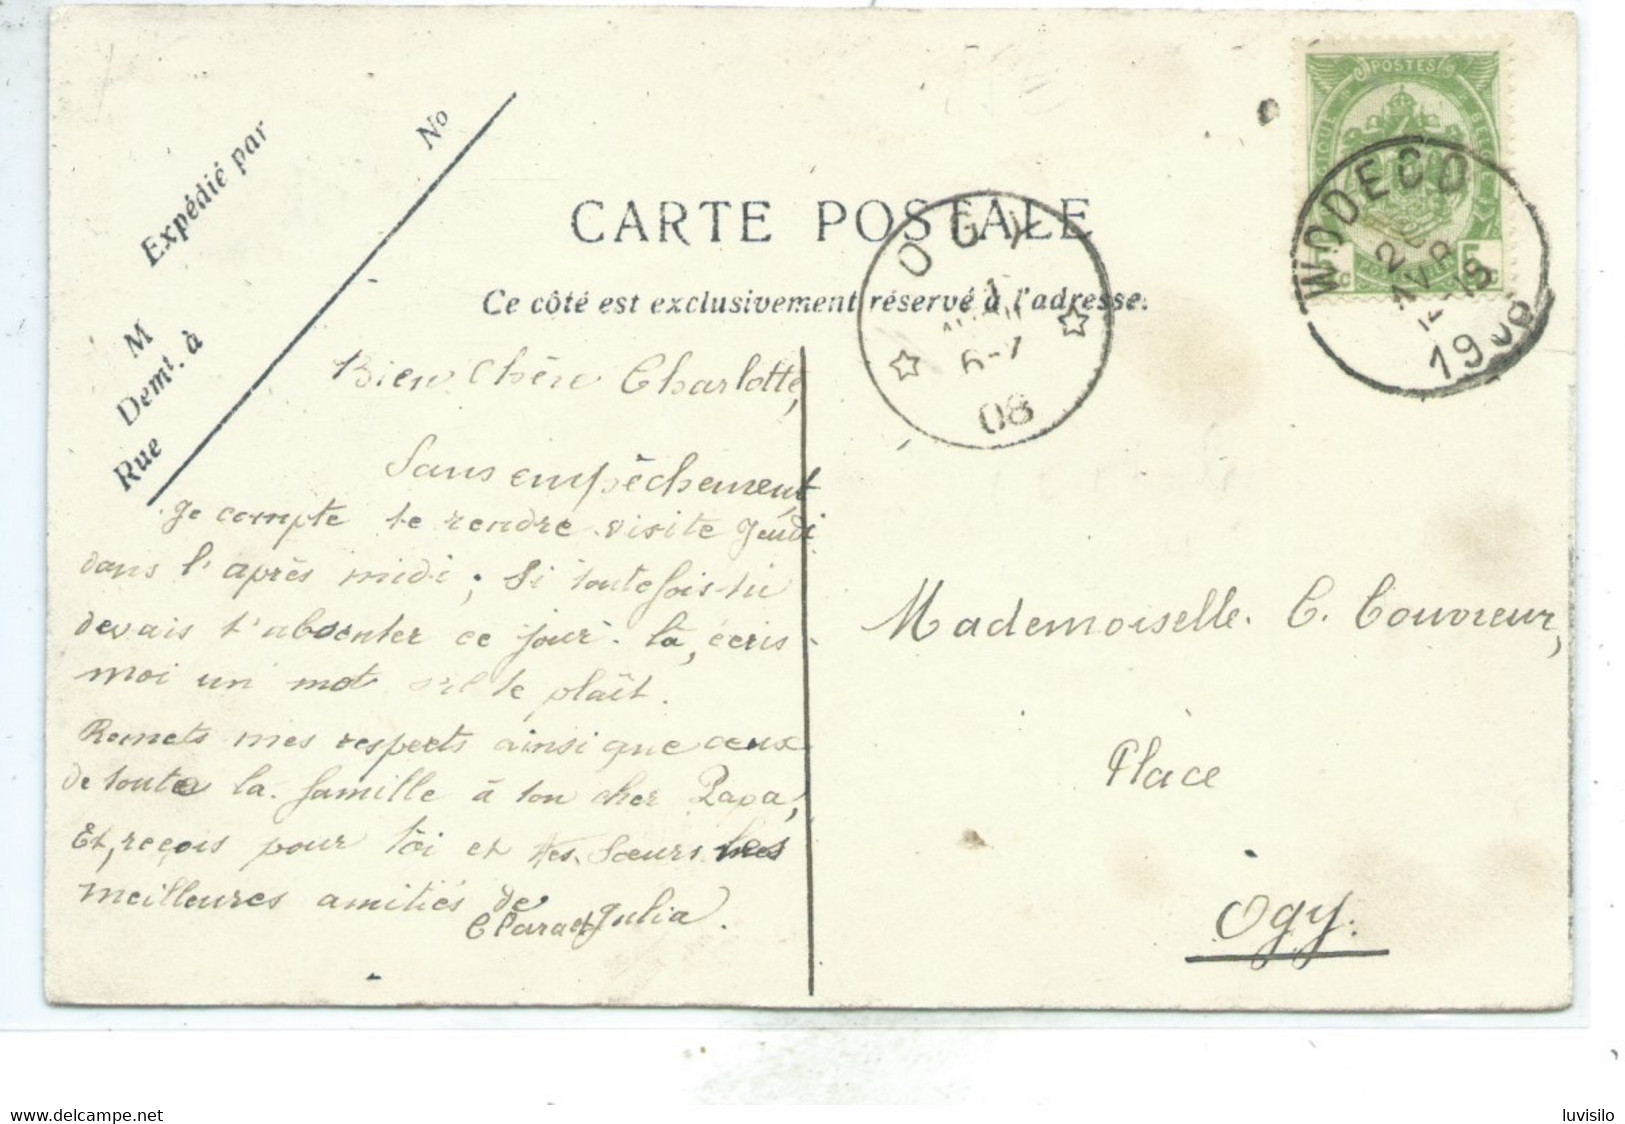 Expédié par
No
M
Demt. à
Rue
CARTE POSTALE
Ce côté est exclusivement réservé à l'adresse.
POSTES
5
OGY
6-7
08
WODECQ
2
AVR
1908
Bien Chère Charlotte,
Sans empêchement,
Je compte te rendre visite Jeudi
dans l'après midi; Si toutefois tu
devais t'absenter ce jour-la, écris-
moi un mot s'il te plaît.
Remets mes respects ainsi que ceux
de toute la famille à ton cher Papa,
Et, reçois pour toi et tes Sœurs mes
meilleures amitiés de
Clara et Julia.
Mademoiselle. C. Couvreur,
Place
Ogy.
www.delcampe.net
luvisilo